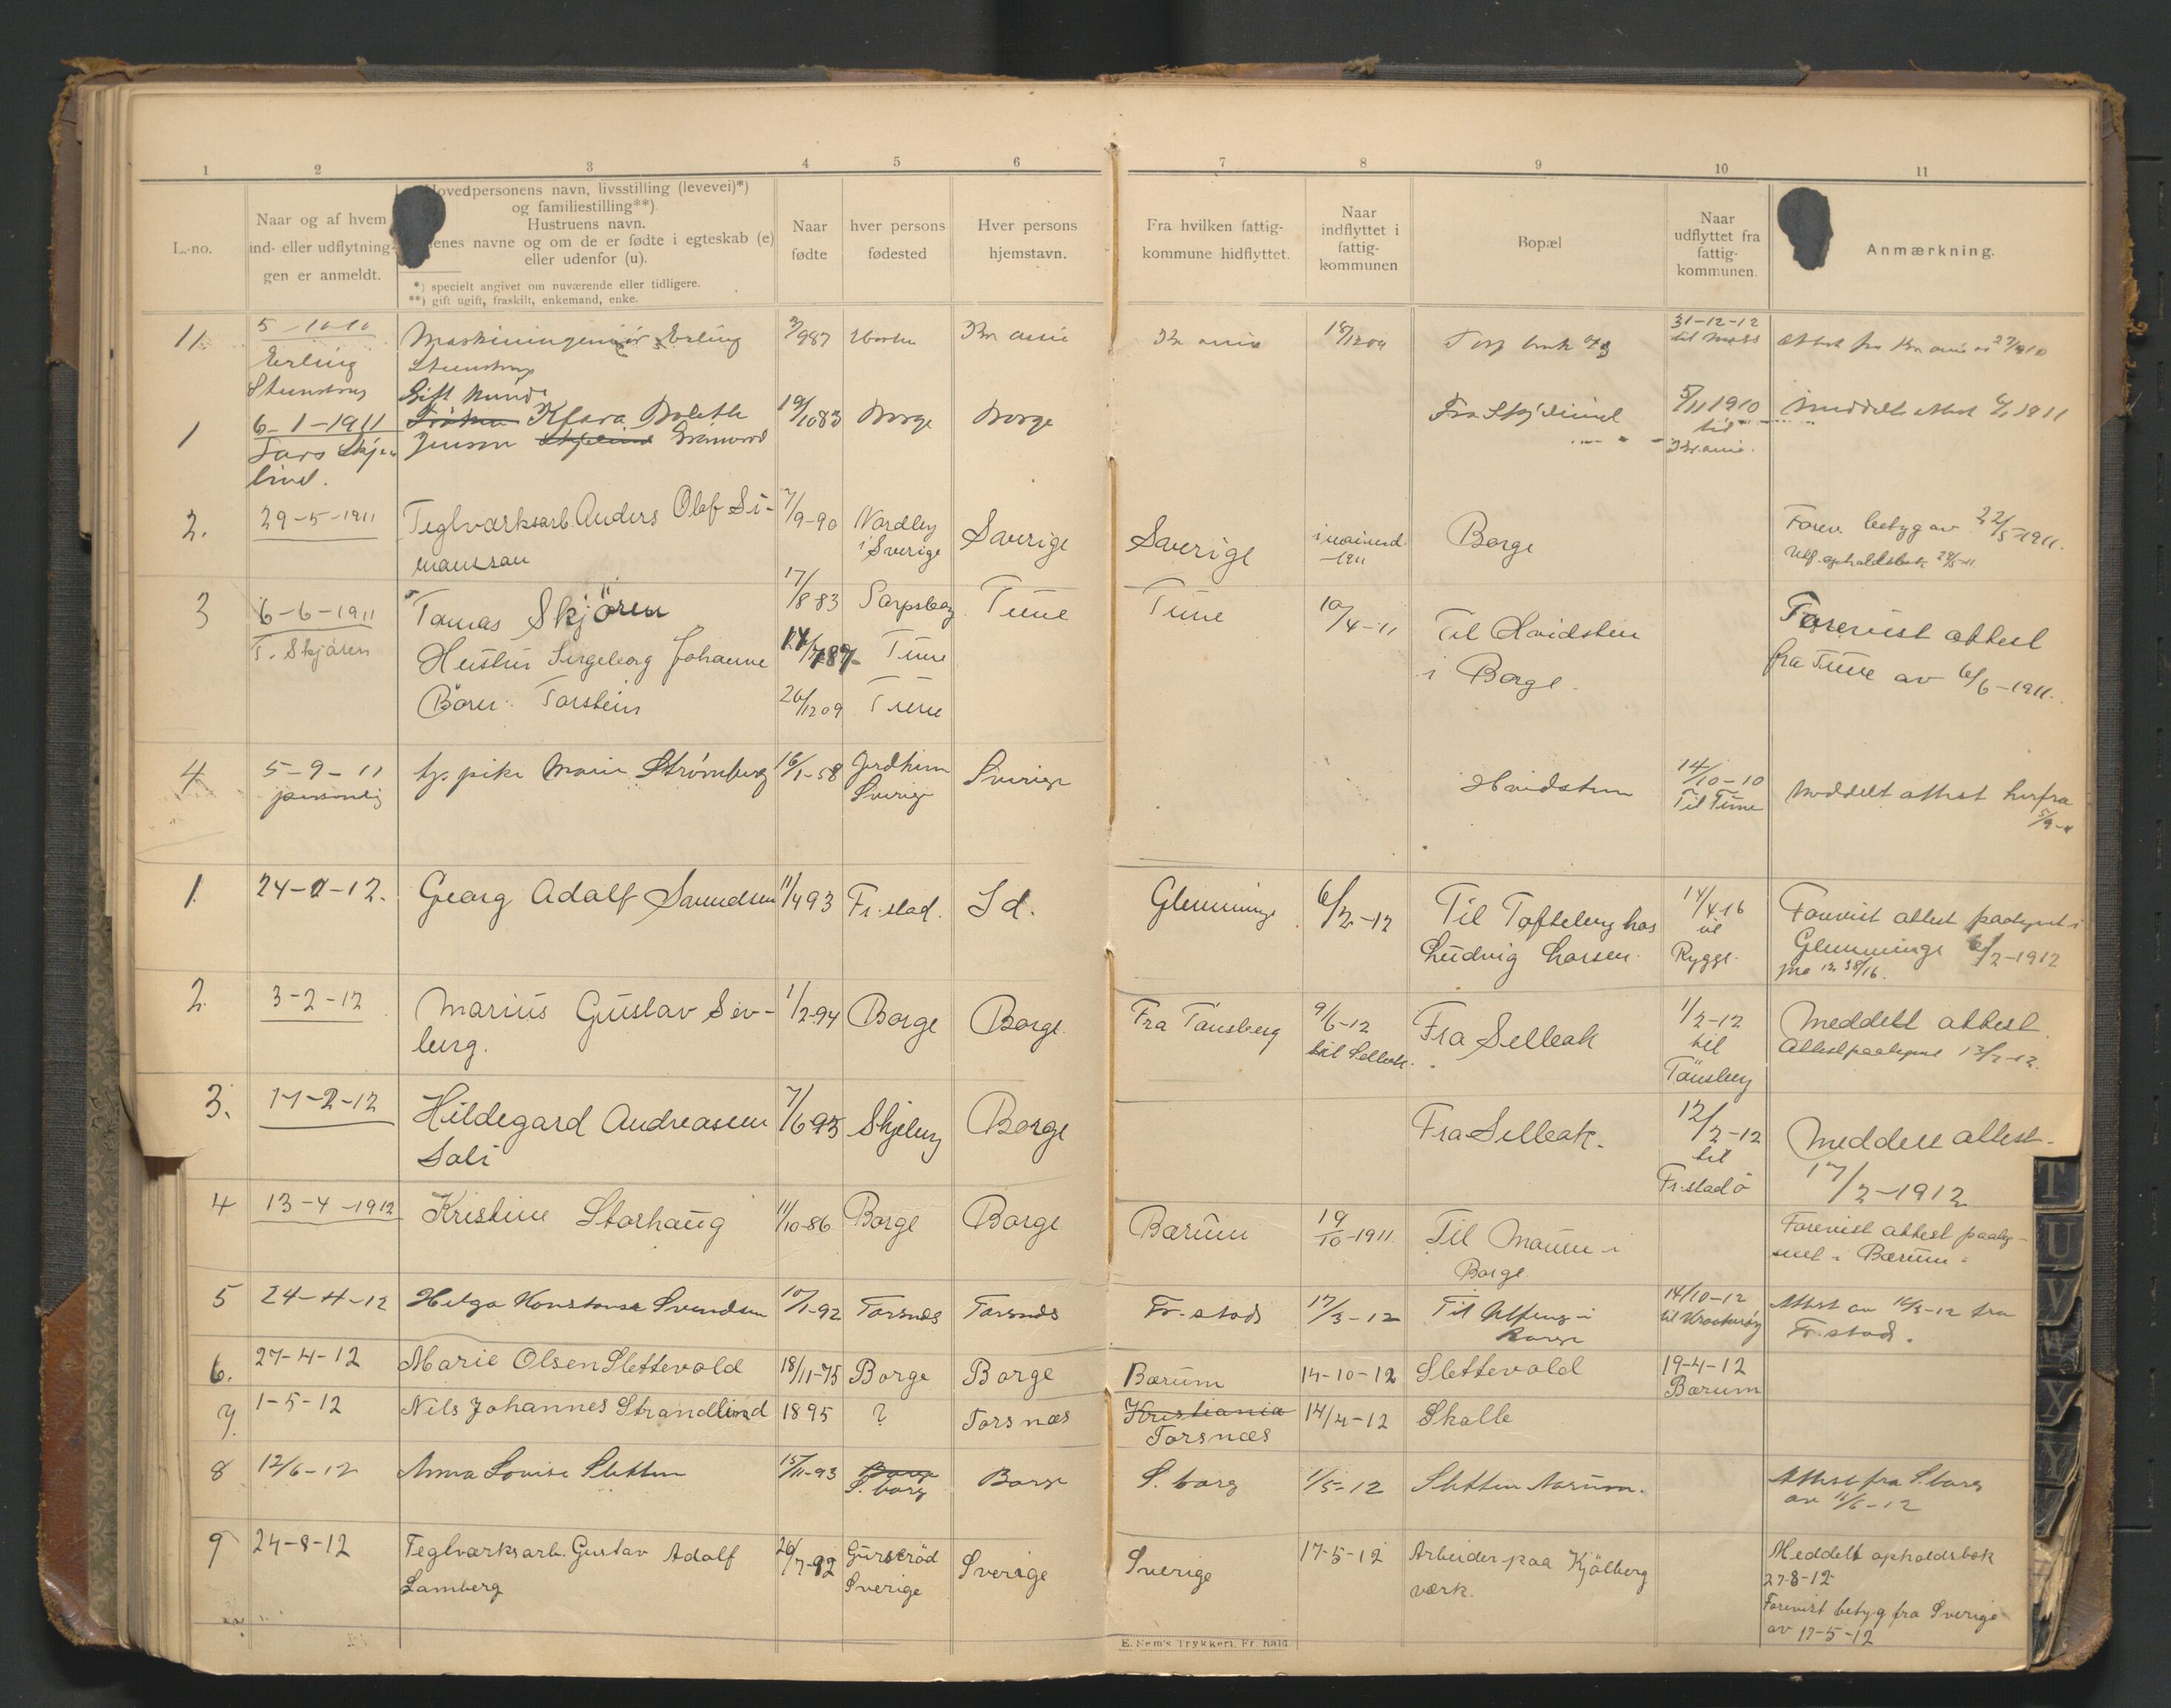 1 2 3 4 5 6 7 8 9 10 11
L.-no.
Naar og af hvem
ind- eller udflytnin-
gen er anmeldt.
ovedpersonens navn, livsstilling (levevei)*)
og familiestilling**).
Hustruens navn.
enes navne og om de er fødte i egteskab (e)
eller udenfor (u).
*) specielt angivet om nuværende eller tidligere.
**) gift ugift, fraskilt, enkemand, enke.
Naar
fødte
hver persons
fødested
Hver persons
hjemstavn.
Fra hvilken fattig-
kommune hidflyttet.
Naar
indflyttet i
fattig-
kommunen
Bopæl
Naar
udflyttet fra
fattig-
kommunen.
Anmærkning.
11. 5-10-10 Maskiningeniör Erling Kr ania Kr ania Torp bruk 31-12-12
Erling Steenstrup til Moss
Steenstrup
Gift
1 6-1-1911 Klara Bolette 19/10 83 Borge Borge 5/11 1910 Meddelt attest 6/1 1911
Lars Skje- Jensen til
lind. Kr.ania.
2. 29-5-1911 Teglværksarb. Anders Olaf Si- 7/9-90 Nordby Sverige Sverige i mai md. Borge Forev. betyg av 22/5-1911.
mansson i Sverige -1911
3 6-6-1911 Tomas Skjören 17/8 83 Sarpsborg Tune Tune 10/4-11 Til Hvidsten Forevist attest
T. Skjören Hustru Ingeborg Johanne Tune i Borge. fra Tune av 6/6-1911.
Börn: Torstein 26/12 09 Tune
4 5-9-11 pike Marie Strömberg 16/1-58 Sverige Hvidsten 14/10-10 Meddelt attest herfra
personlig Sverige Til Tune 5/9-11
1. 24-2-12. Georg Adolf Svendsen 11/4 93 Fr.stad. Id. Glemminge 6/2-12 Til Tofteberg hos 14/4-16 Forevist attest paategnet i
Ludvig Larsen. til Rygge. Glemminge 6/2-1912
2. 3-2-12 Marius Gustav Siv- 1/2-94 Borge Borge. Fra Tönsberg 9/6-12 Fra Sellebak 1/2-12 Meddelt attest.
berg. til Sellebak. til Attest paategnet 13/2-12.
Tönsberg
3. 17-2-12 Hildegard Andreasen 7/6 93 Skjeberg Borge Fra Sellebak. 12/2-12 Meddelt attest.
Soli til 17/2-1912
Fr.stad
4 13-4-1912 Kristine Storhaug 11/10-86 Borge Borge Bærum 19/10-1911 Til Moum i Forevist attest paateg-
Borge net i Bærum.
5 24-4-12 Helga Konstanse Svendsen 10/1-92 Torsnes Torsnes Fr.stad 17/3-12 Til i 14/10-12 Attest av 16/3-12 fra
Borge til Kraakerøy Fr.stad.
6. 27-4-12 Marie Olsen Slettevold 18/11-75 Borge Borge Bærum 14-10-12 Slettevold 19-4-12
Bærum
7. 1-5-12 Nils Johannes Strandlind 1895 ? Torsnæs Kristiania 14/4-12 Skalle
Torsnæs
8 12/6-12 Anna Lovise Sletten 15/11-93 Borge Borge S.borg 1/5-12 Sletten Aarum. Attest fra S.borg
S.borg av 11/6-12
9 24-8-12 Teglværksarb. Gustav Adolf 26/7-92 Gurseröd Sverige Sverige 17-5-12 Arbeider paa Kjölberg Meddelt opholdsbok
Lamberg Sverige værk. 27-8-12
Forevist betyg fra Sverige
av 17-5-12
E. Sem's Trykkeri, Fr.hald.
T
U
V
W
X
Y